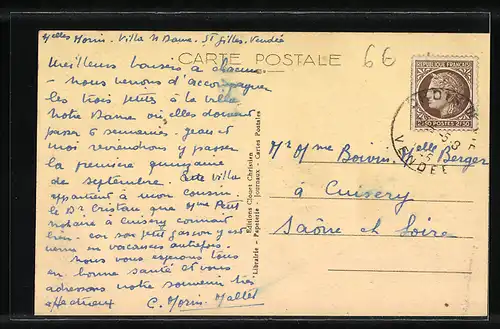 Melles Morin. Villa N Dame. St Gilles. Vendée
CARTE POSTALE
66
Meilleurs baisers à chacune
- nous venons d'accompagner
les trois petits à la villa
Notre Dame où elles doivent
passer 6 semaines. Jean et
moi reviendrons y passer
la première quinzaine
de septembre. Cette villa
appartient à mon cousin
le Dr Cristau que Me Petit
notaire à Cuisery connait
bien. car son petit garçon y est
venu en vacances autrefois.
Nous vous espérons tous
en bonne santé et vous
adressons notre souvenir très
affectueux C. Morin. Mallet
Librairie - Papeterie - Journaux - Cartes Postales
REPUBLIQUE FRANÇAISE
2F50 POSTES 2F50
VENDEE
Mr Mme Boivin Melles Berger
à Cuisery
Saône et Loire